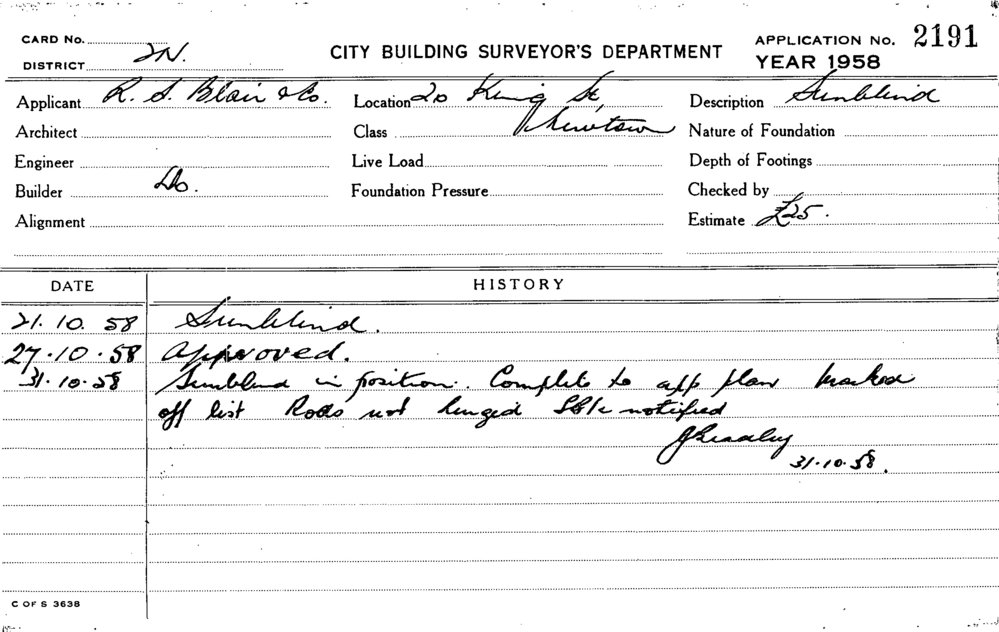 CARD No.
DISTRICT 2N.
CITY BUILDING SURVEYOR'S DEPARTMENT
APPLICATION No. 2191
YEAR 1958
Applicant R. S. Blair & Co.
Location 20 King St,
Description Sunblind
Architect
Class Newtown
Nature of Foundation
Engineer
Live Load
Depth of Footings
Builder Do.
Foundation Pressure
Checked by
Alignment
Estimate £25.
DATE HISTORY
21.10.58 Sunblind.
27.10.58 Approved.
31.10.58 Sunblind in position. Complete to app plan marked
off list Rods not hinged notified
31.10.58.
C OF S 3638